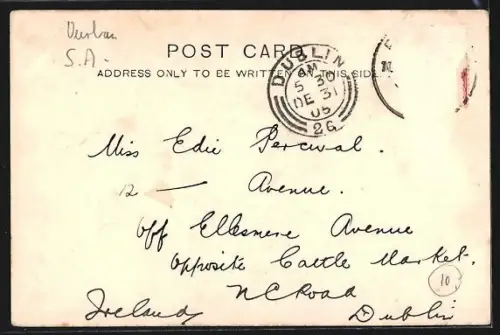 Durban
S.A.
POST CARD
ADDRESS ONLY TO BE WRITTEN ON THIS SIDE
DUBLIN
AM
5 30
DE 31
05
26
Miss Edie Percival.
12 — Avenue.
off Ellesmere Avenue
opposite Cattle Market.
N C Road
Ireland Dublin
10